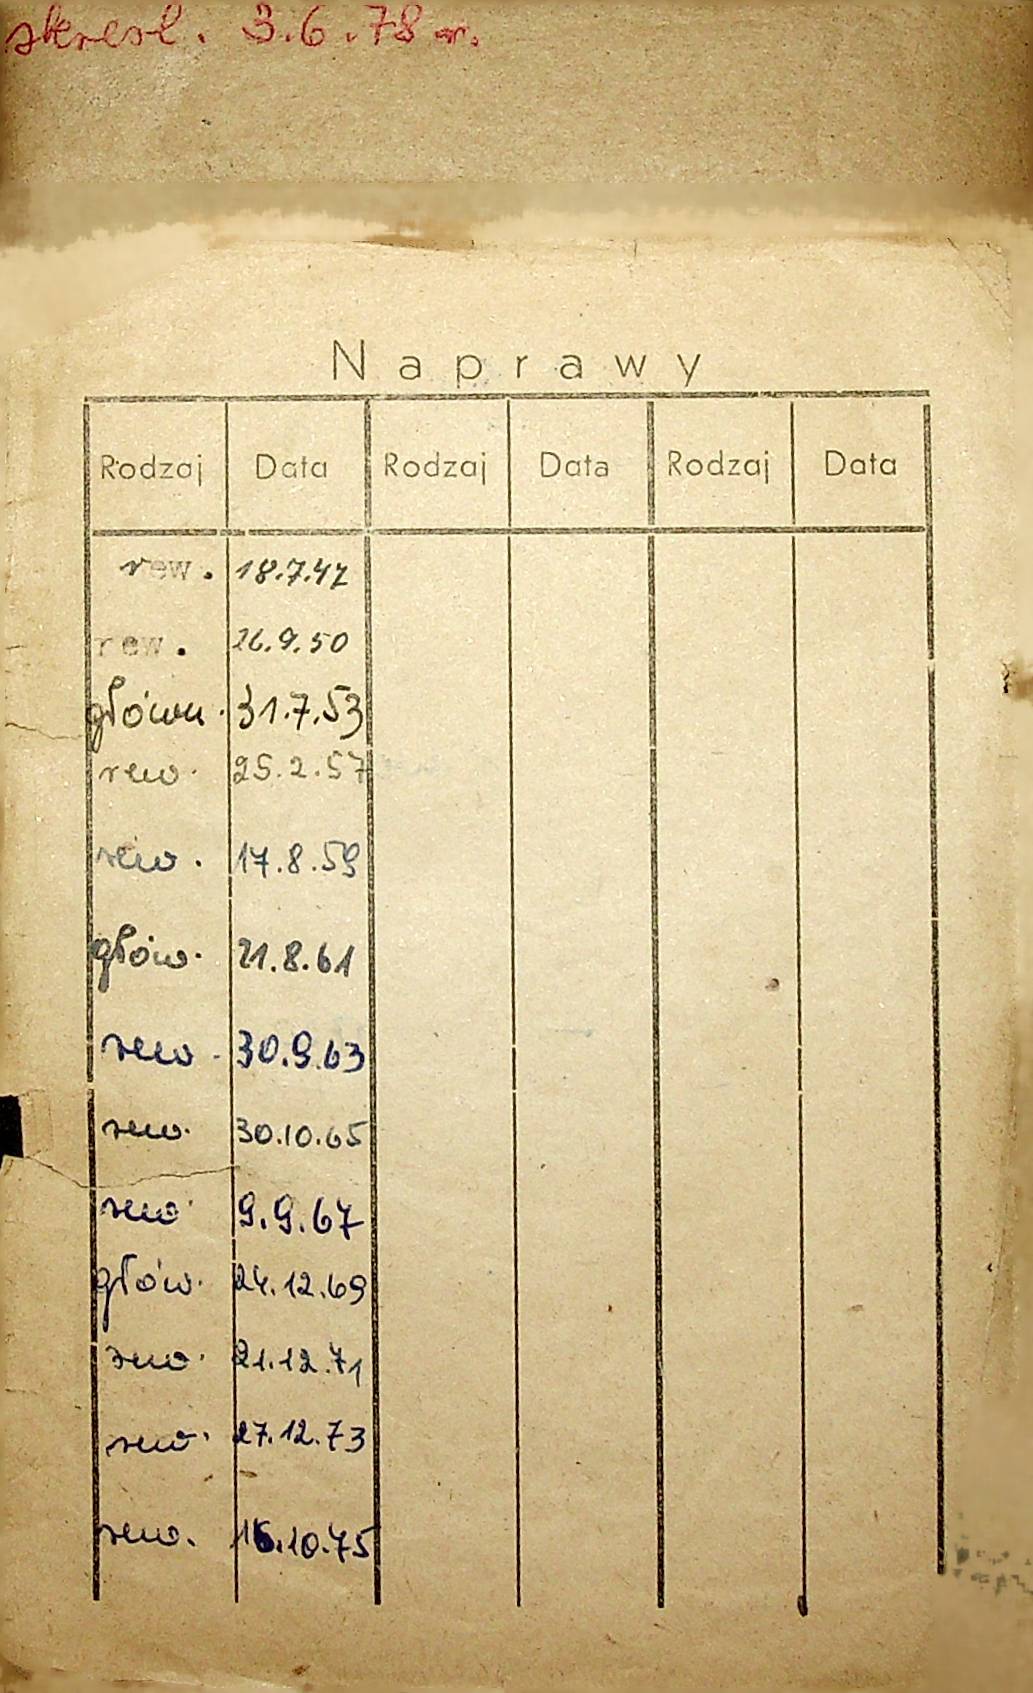 skresl. 3.6.78 r.
Naprawy
Rodzaj Data Rodzaj Data Rodzaj Data
rew. 18.7.47
rew. 26.9.50
główn. 31.7.53
rew. 25.2.57
rew. 17.8.59
głów. 21.8.61
rew. 30.9.63
rew. 30.10.65
rew. 9.9.67
głów. 24.12.69
rew. 21.12.71
rew. 27.12.73
rew. 16.10.75